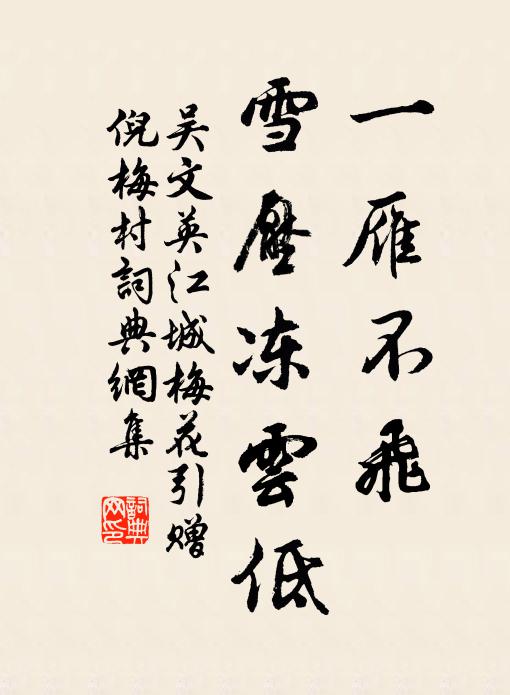 一雁不飛
雪壓冻雲低
吴文英江城梅花引赠
倪梅村詞典網集
詞典
网印